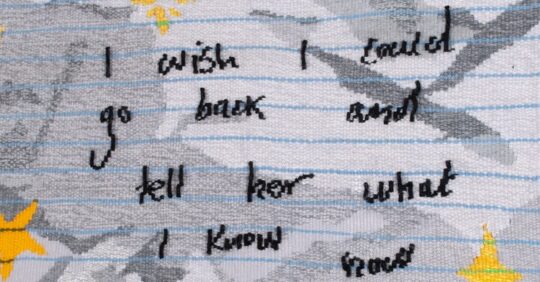 I wish I could
go back and
tell her what
I know now